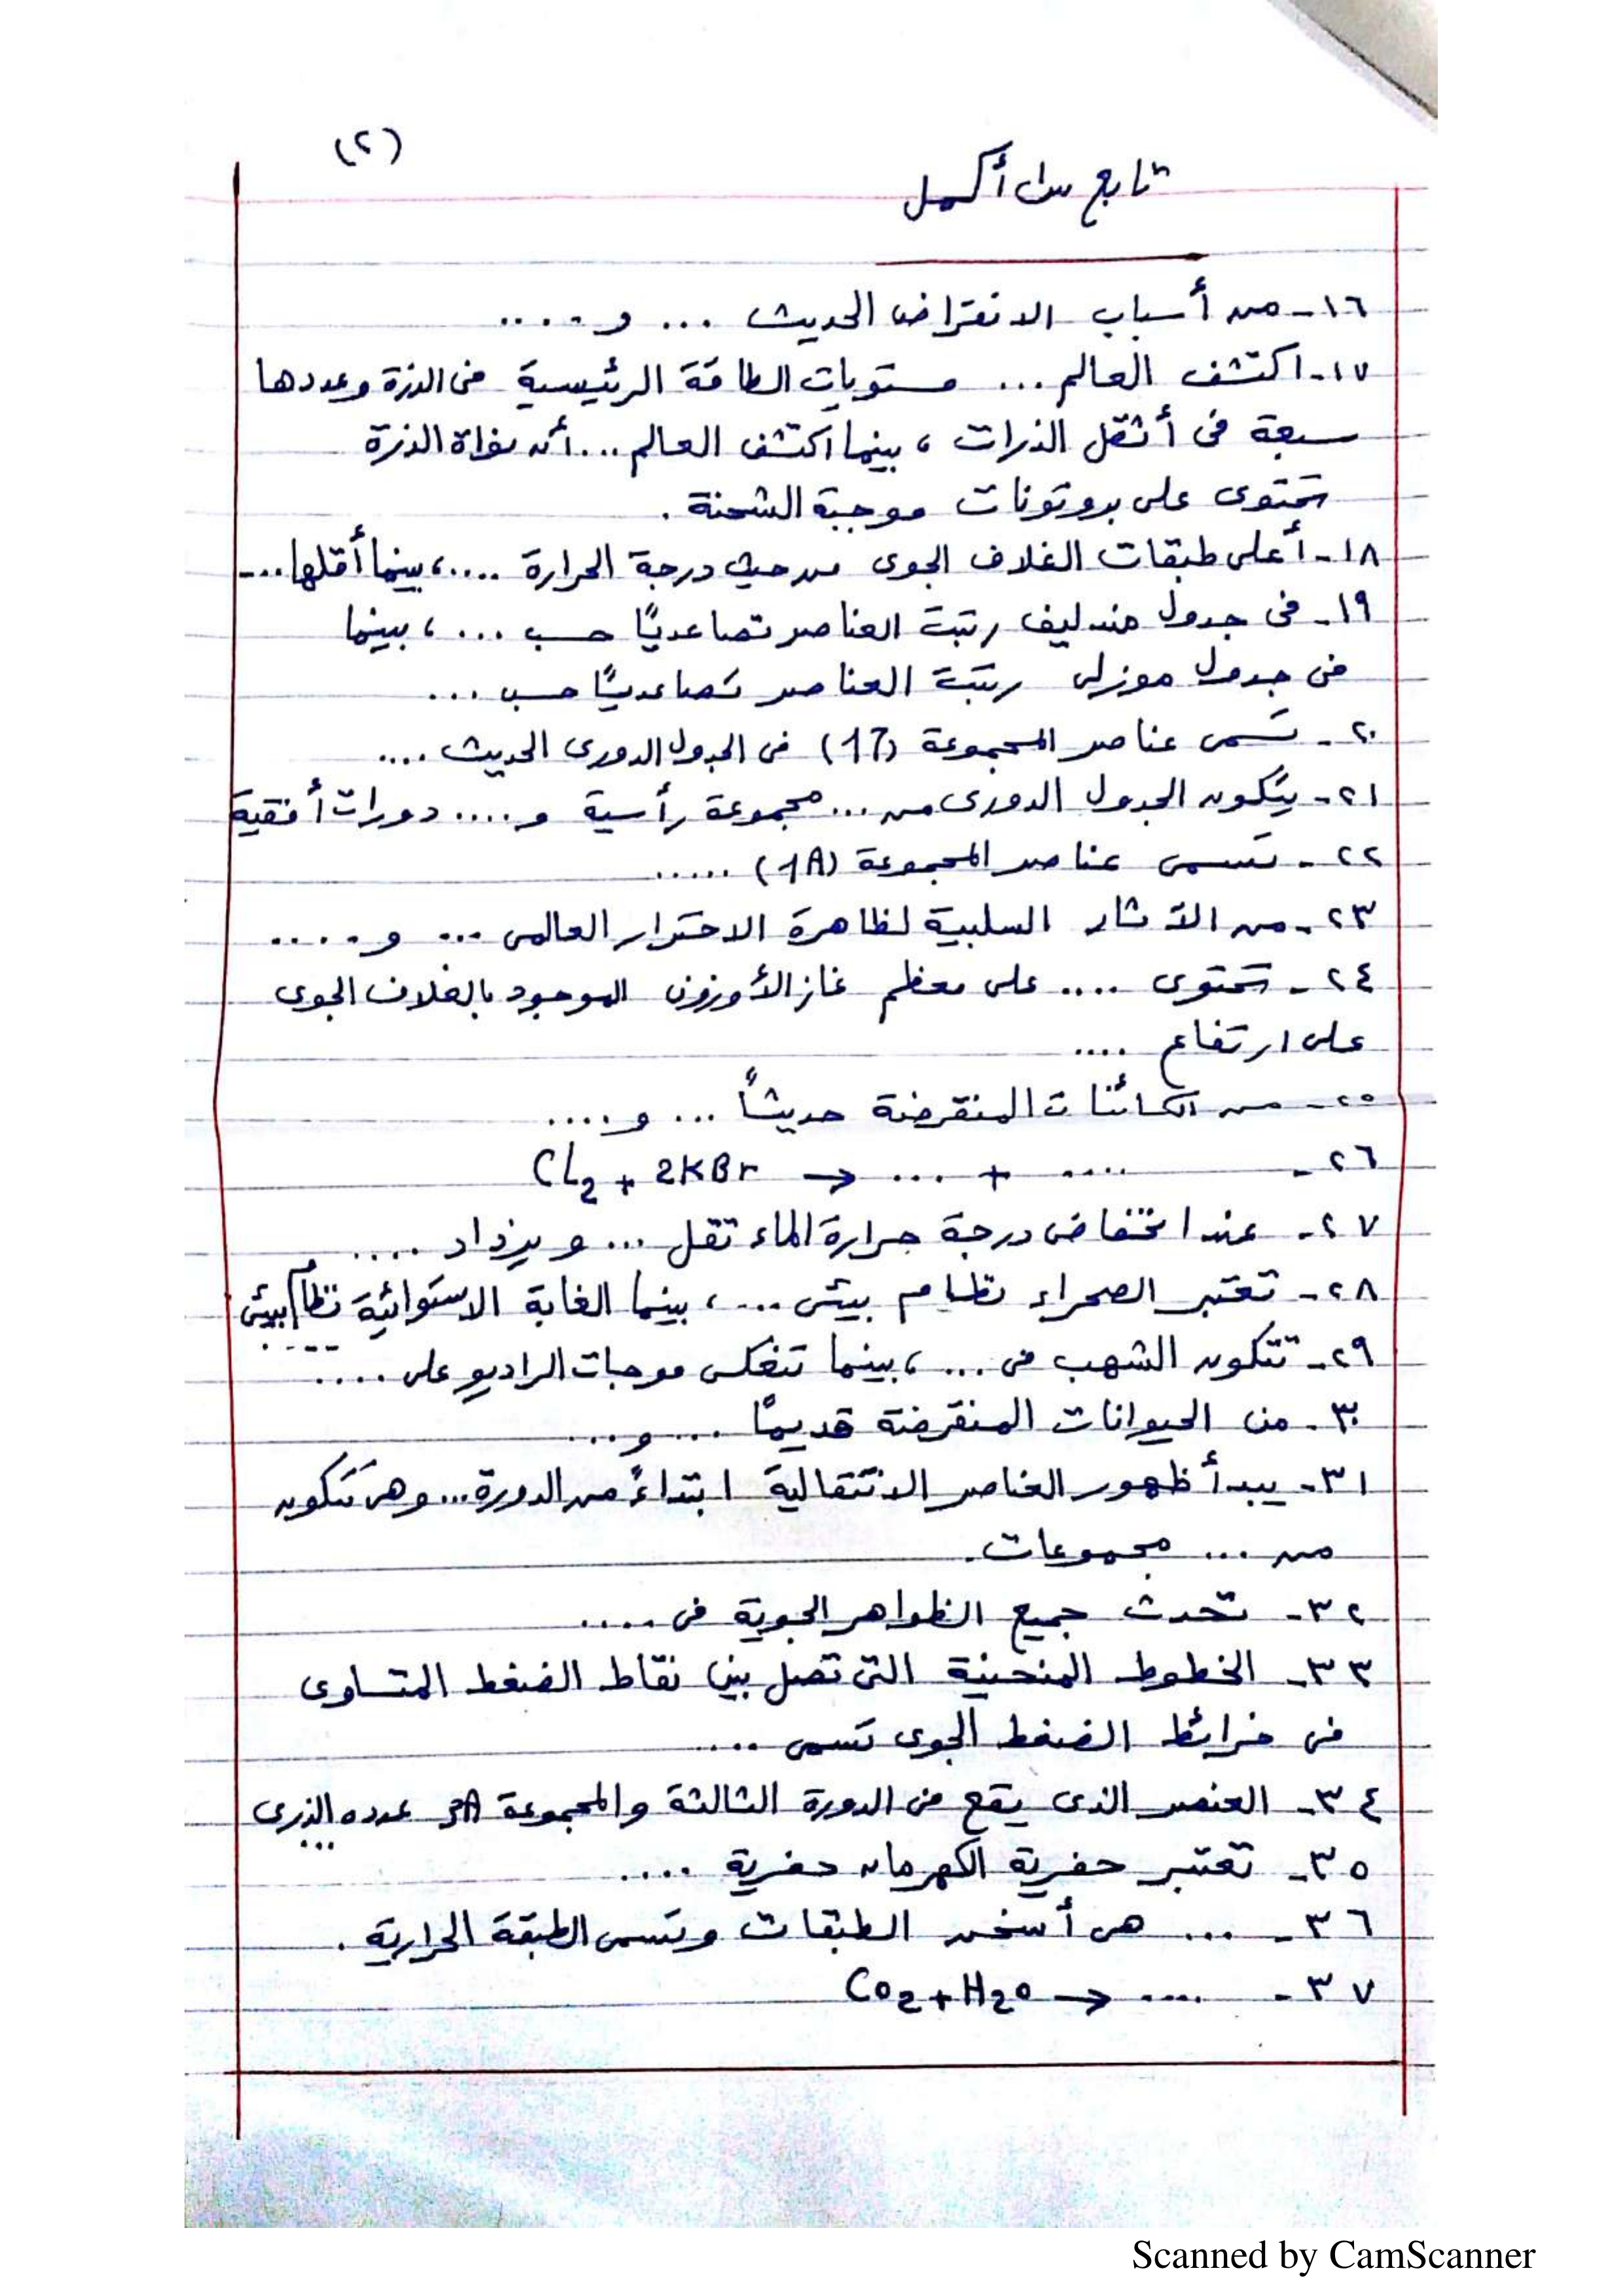 (٢)
تابع س١ أكمل
١٦- من أسباب الانقراض الحديث ... و ....
١٧- اكتشف العالم ... مستويات الطاقة الرئيسية فى الذرة وعددها
سبعة فى أثقل الذرات ، بينما اكتشف العالم ... أن نواة الذرة
تحتوى على بروتونات موجبة الشحنة .
١٨- أعلى طبقات الغلاف الجوى من حيث درجة الحرارة .... ، بينما أقلها ...
١٩- فى جدول مندليف رتبت العناصر تصاعديًا حسب ... ، بينما
فى جدول موزلى رتبت العناصر تصاعديًا حسب ...
٢٠- تسمى عناصر المجموعة (17) فى الجدول الدورى الحديث ....
٢١- يتكون الجدول الدورى من ... مجموعة رأسية و .... دورات أفقية
٢٢- تسمى عناصر المجموعة (1A) .....
٢٣- من الآثار السلبية لظاهرة الاحترار العالمى ... و ....
٢٤- تحتوى .... على معظم غاز الأوزون الموجود بالغلاف الجوى
على ارتفاع ....
٢٥- من الكائنات المنقرضة حديثاً ... و ....
٢٦- Cl2 + 2KBr → ... + ....
٢٧- عند انخفاض درجة حرارة الماء تقل ... ويزداد ....
٢٨- تعتبر الصحراء نظام بيئى ... ، بينما الغابة الاستوائية نظام بيئى
....
٢٩- تتكون الشهب فى ... ، بينما تنعكس موجات الراديو على ....
٣٠- من الحيوانات المنقرضة قديمًا ... و ...
٣١- يبدأ ظهور العناصر الانتقالية ابتداءً من الدورة ... وهى تتكون
من ... مجموعات.
٣٢- تحدث جميع الظواهر الجوية فى ....
٣٣- الخطوط المنحنية التى تصل بين نقاط الضغط المتساوى
فى خرائط الضغط الجوى تسمى ....
٣٤- العنصر الذى يقع فى الدورة الثالثة والمجموعة 3A عدده الذرى
...
٣٥- تعتبر حفرية الكهرمان حفرية ....
٣٦- ... هى أسخن الطبقات وتسمى الطبقة الحرارية .
٣٧- Co2 + H2o → ....
Scanned by CamScanner